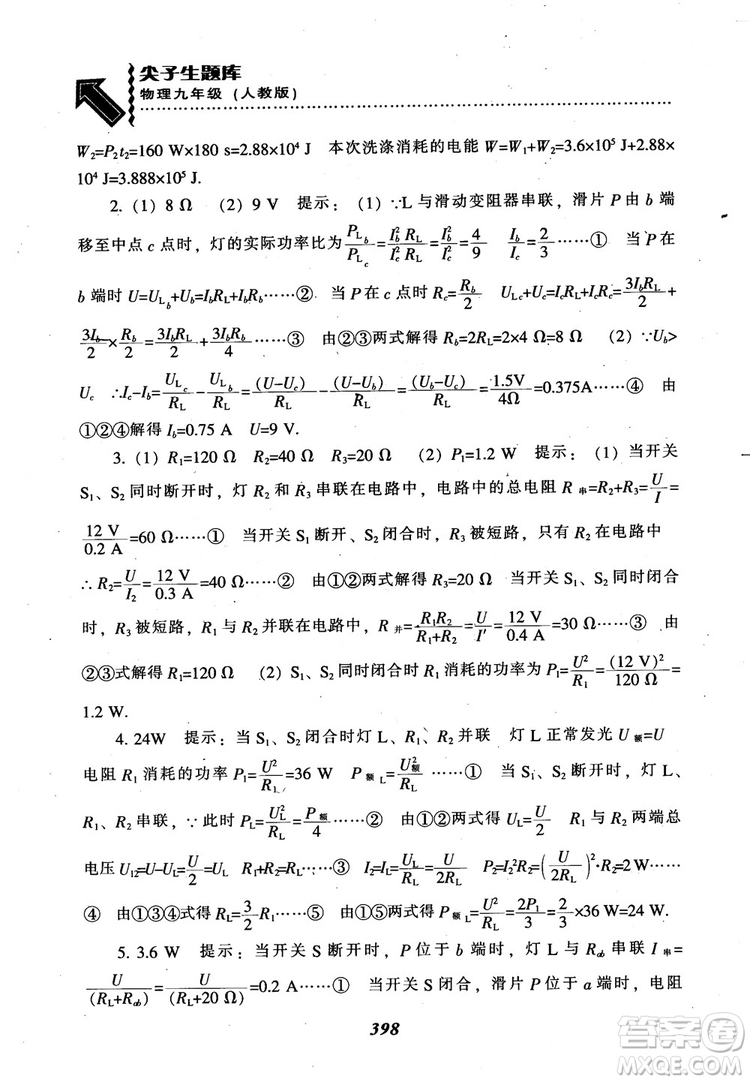 尖子生题库
物理九年级（人教版）
W₂=P₂t₂=160 W×180 s=2.88×10⁴ J　本次洗涤消耗的电能 W=W₁+W₂=3.6×10⁵ J+2.88×
10⁴ J=3.888×10⁵ J.
2. (1) 8 Ω　(2) 9 V　提示：(1) ∵L 与滑动变阻器串联，滑片 P 由 b 端
移至中点 c 点时，灯的实际功率比为 P_Lb/P_Lc=I_b²R_L/I_c²R_L=I_b²/I_c²=4/9　I_b/I_c=2/3……①　当 P 在
b 端时 U=U_Lb+U_b=I_bR_L+I_bR_b……②　当 P 在 c 点时 R_c=R_b/2　U_Lc+U_c=I_cR_L+I_cR_c=3I_bR_L/2+
3I_b/2×R_b/2=3I_bR_L/2+3I_bR_b/4……③　由②③两式解得 R_b=2R_L=2×4 Ω=8 Ω　(2) ∵U_b>
U_c　∴I_c-I_b=U_Lc/R_L-U_Lb/R_L=(U-U_c)/R_L-(U-U_b)/R_L=(U_b-U_c)/R_L=1.5V/4Ω=0.375A……④　由
①②④解得 I_b=0.75 A　U=9 V.
3. (1) R₁=120 Ω　R₂=40 Ω　R₃=20 Ω　(2) P₁=1.2 W　提示：(1) 当开关
S₁、S₂ 同时断开时，灯 R₂ 和 R₃ 串联在电路中，电路中的总电阻 R串=R₂+R₃=U/I=
12 V/0.2 A=60 Ω……①　当开关 S₁ 断开、S₂ 闭合时，R₃ 被短路，只有 R₂ 在电路中
∴ R₂=U/I₂=12 V/0.3 A=40 Ω……②　由①②两式解得 R₃=20 Ω　当开关 S₁、S₂ 同时闭合
时，R₃ 被短路，R₁ 与 R₂ 并联在电路中，R并=R₁R₂/(R₁+R₂)=U/I′=12 V/0.4 A=30 Ω……③　由
②③式解得 R₁=120 Ω　(2) S₁、S₂ 同时闭合时 R₁ 消耗的功率为 P₁=U²/R₁=(12 V)²/120 Ω=
1.2 W.
4. 24W　提示：当 S₁、S₂ 闭合时灯 L、R₁、R₂ 并联　灯 L 正常发光 U额=U
电阻 R₁ 消耗的功率 P₁=U²/R₁=36 W　P额L=U额²/R_L……①　当 S₁、S₂ 断开时，灯 L、
R₁、R₂ 串联，∵此时 P_L=U_L²/R_L=P额/4……②　由①②两式得 U_L=U/2　R₁ 与 R₂ 两端总
电压 U₁₂=U-U_L=U/2=U_L　R₁+R₂=R_L……③　I₂=I_L=U_L/R_L=U/2R_L　P₂=I₂²R₂=(U/2R_L)²·R₂=2 W……
④　由①③④式得 R_L=3/2R₁……⑤　由①⑤两式得 P额L=U²/R_L=2P₁/3=2/3×36 W=24 W.
5. 3.6 W　提示：当开关 S 断开时，P 位于 b 端时，灯 L 与 R_ab 串联 I串=
U/(R_L+R_ab)=U/(R_L+20 Ω)=0.2 A……①　当开关 S 闭合，滑片 P 位于 a 端时，电阻
398
答案圈
MXQE.COM